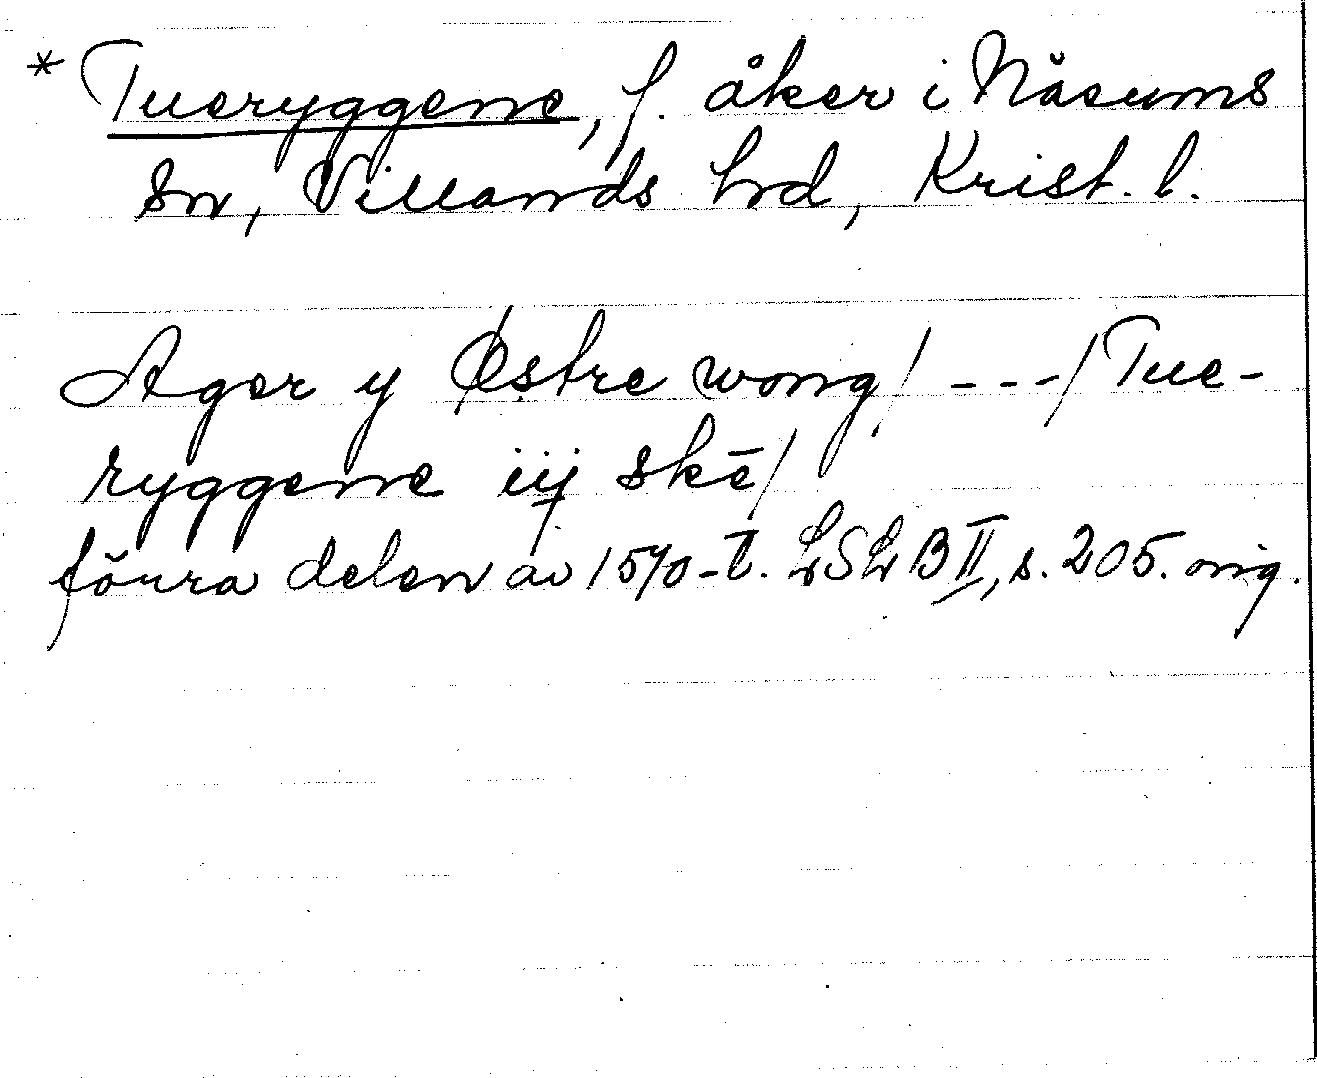 * Tueryggene, f. åker i Nåsums
sn, Villands hrd, Krist. l.
Ager y Østre wong / - - - / Tue-
ryggene iij skē /
förra delen av 1570-t. LSLB II, s. 205. orig.